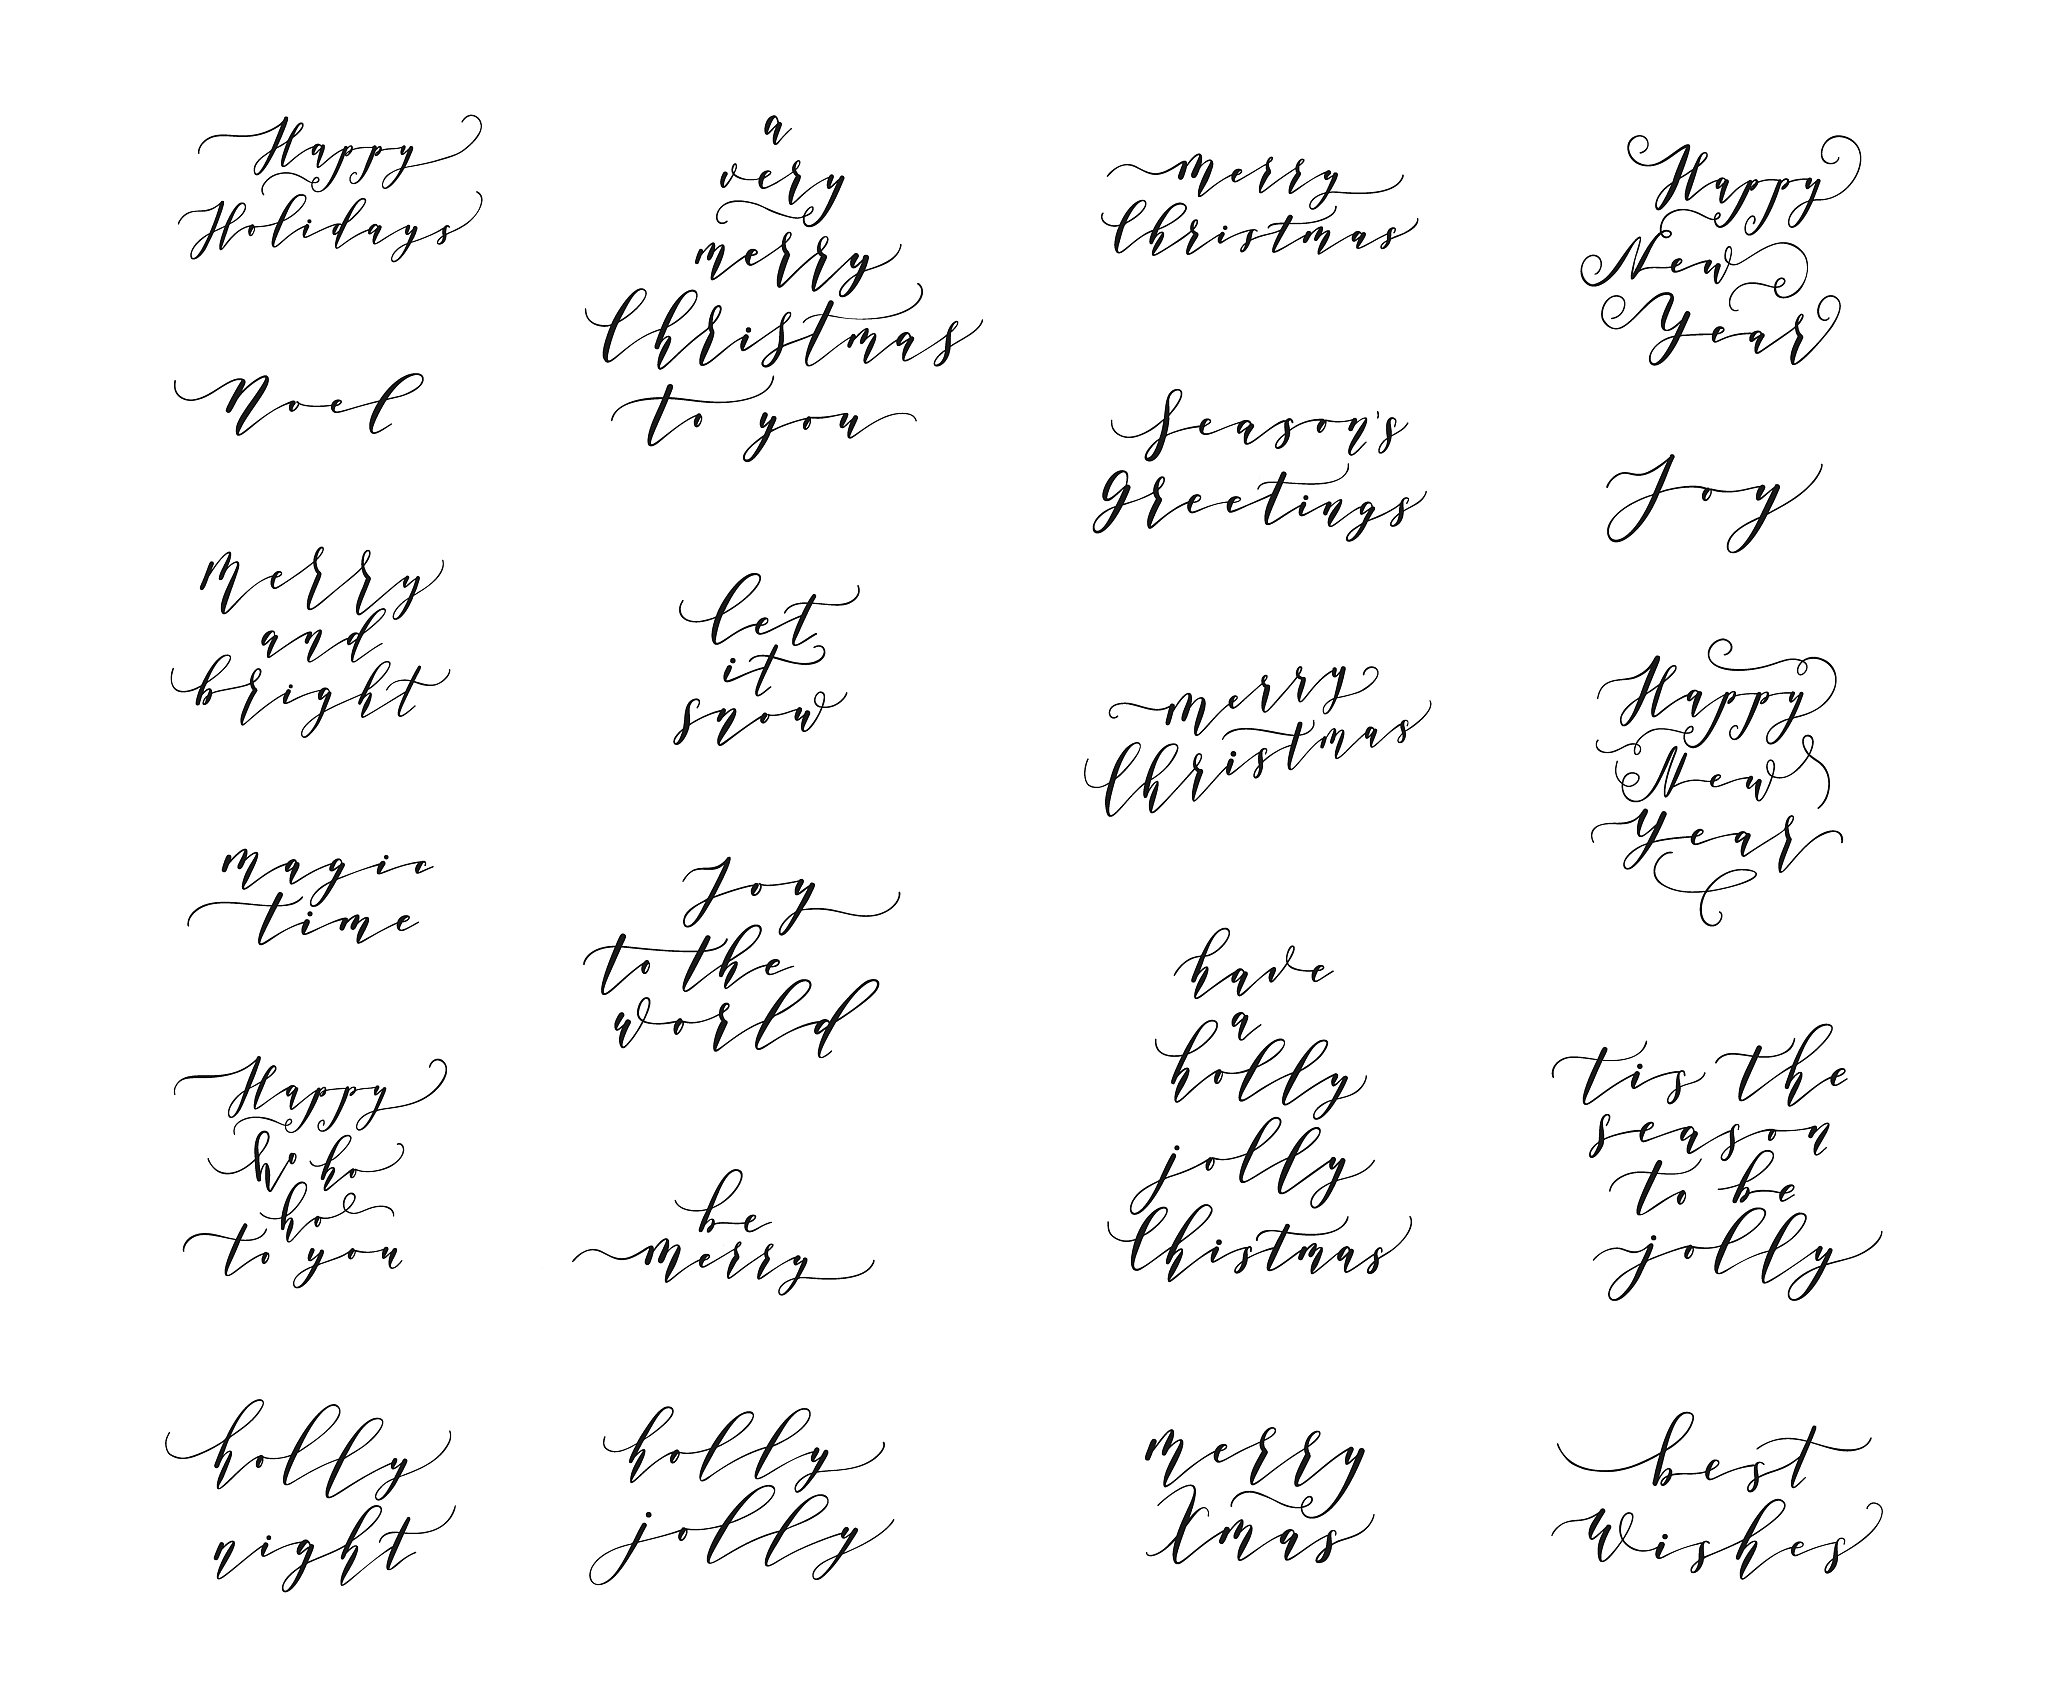 Happy
Holidays
Noel
Merry
and
bright
Magic
time
Happy
ho ho
ho
to you
holly
night
a
very
merry
Christmas
to you
let
it
snow
Joy
to the
world
be
Merry
holly
jolly
Merry
Christmas
Season's
Greetings
Merry
Christmas
have
a
holly
jolly
Chistmas
merry
Xmas
Happy
New
Year
Joy
Happy
New
Year
tis the
season
to be
jolly
best
Wishes